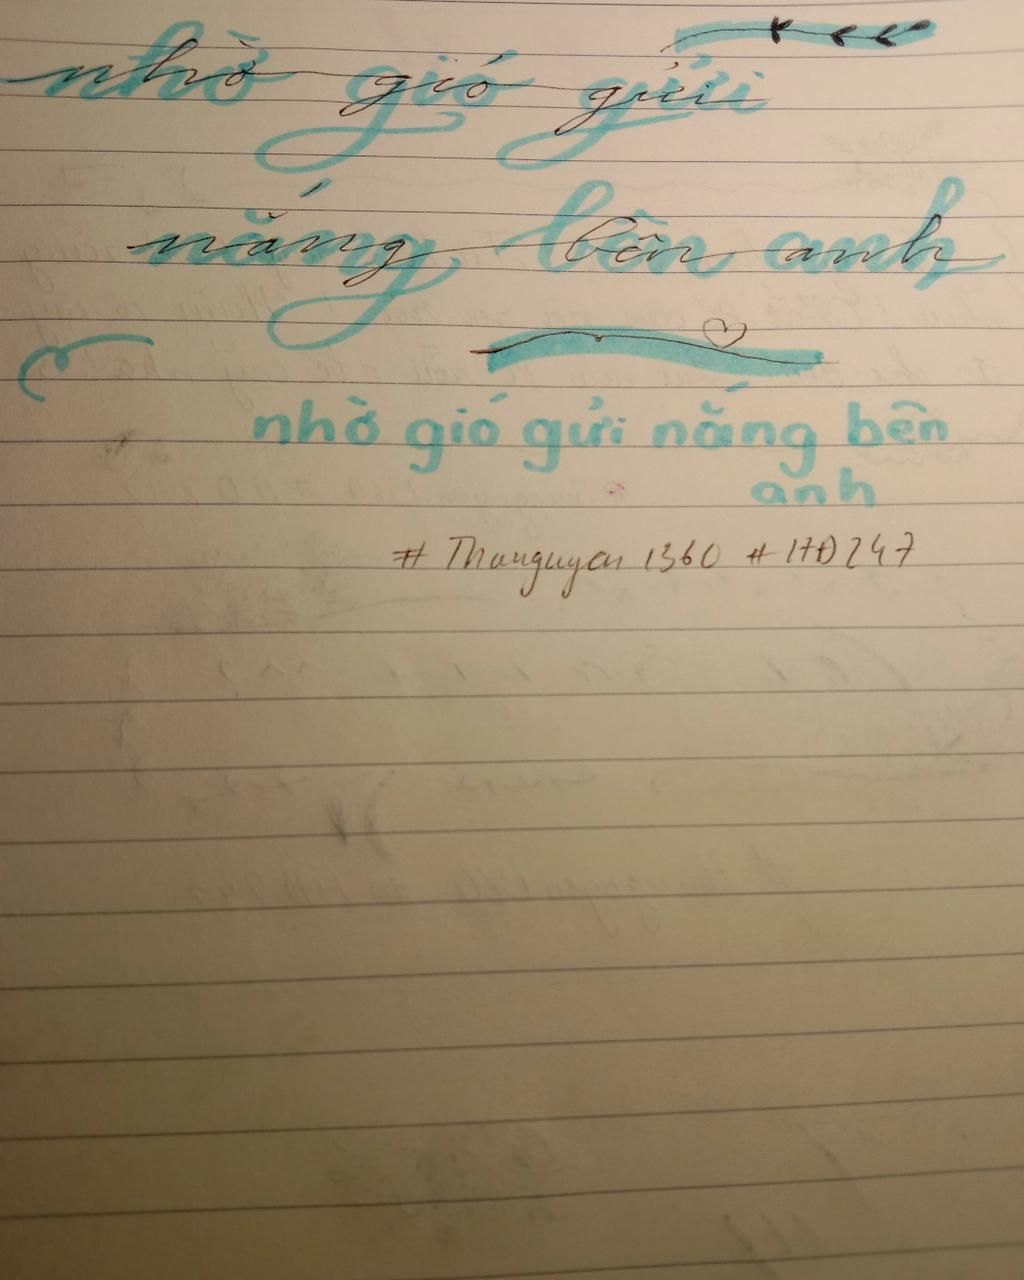 nhờ gió gửi
nắng bên anh
nhờ gió gửi nắng bên
anh
# Thunguyen 1360 # HĐ247